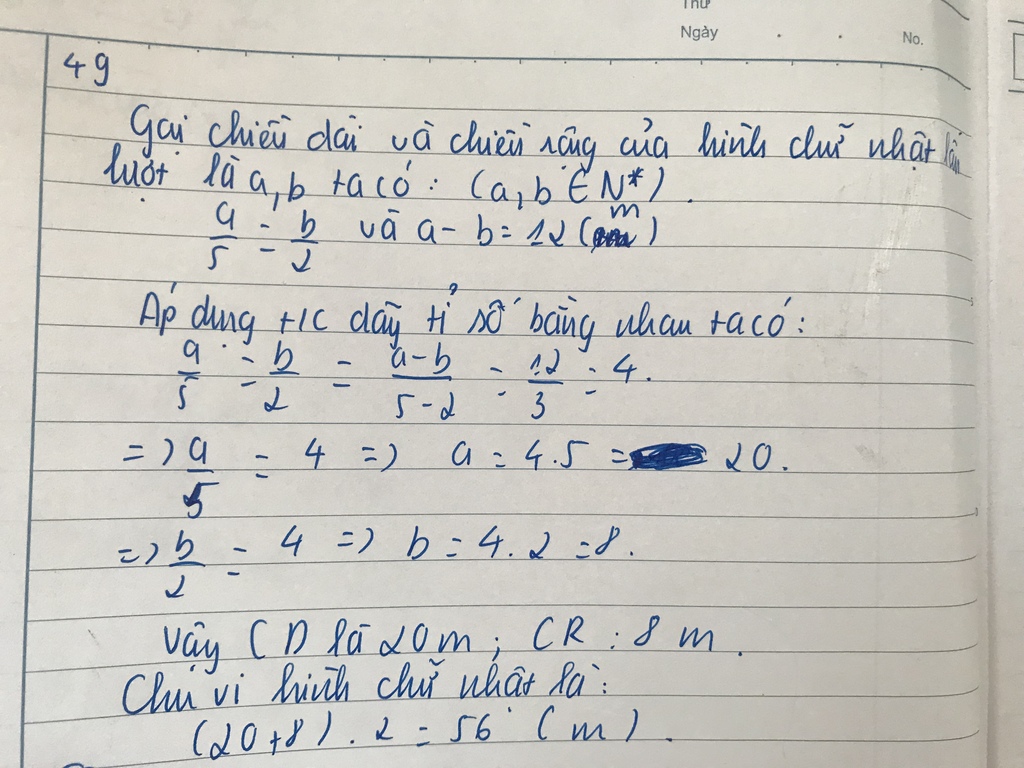 Thứ
Ngày . . No.
49
Gọi chiều dài và chiều rộng của hình chữ nhật lần
lượt là a, b ta có : (a, b ∈ N*).
a/5 = b/2 và a - b = 12 (m)
Áp dụng t/c dãy tỉ số bằng nhau ta có :
a/5 = b/2 = a-b/5-2 = 12/3 = 4.
=> a/5 = 4 => a = 4.5 = 20.
=> b/2 = 4 => b = 4.2 = 8.
Vậy CD là 20m ; CR : 8 m.
Chu vi hình chữ nhật là :
(20+8) . 2 = 56 (m).